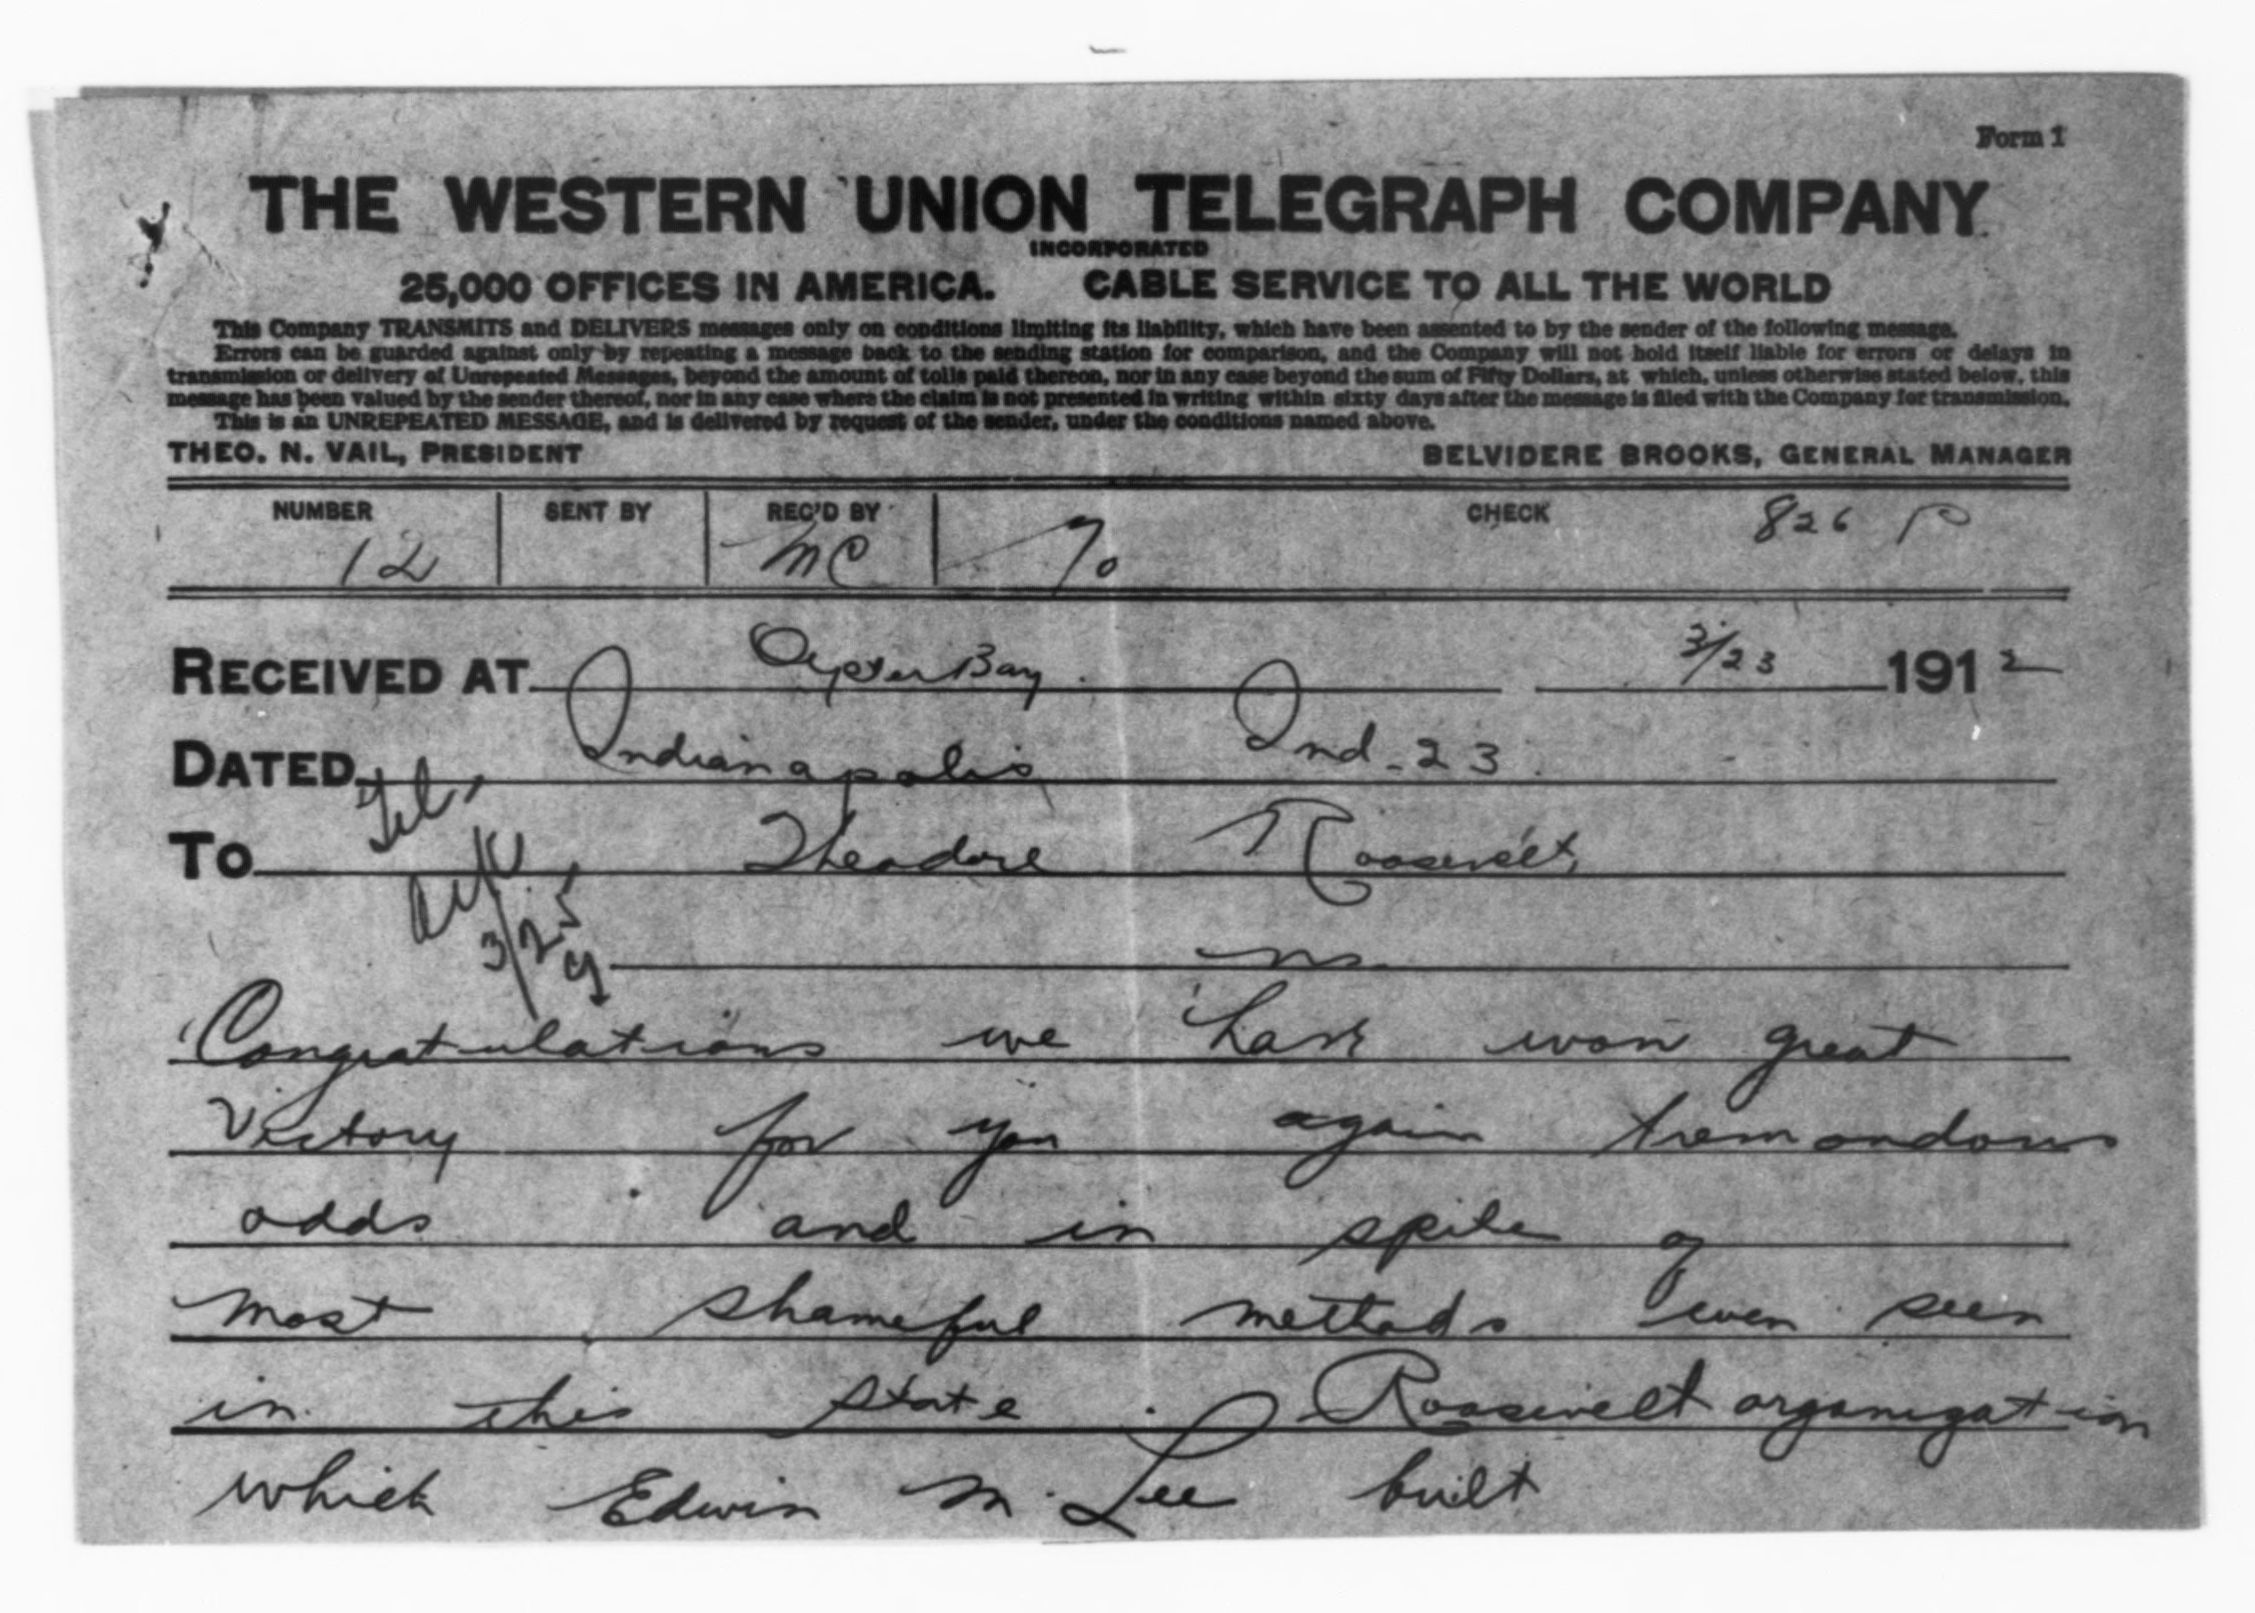 Form 1
THE WESTERN UNION TELEGRAPH COMPANY
INCORPORATED
25,000 OFFICES IN AMERICA. CABLE SERVICE TO ALL THE WORLD
This Company TRANSMITS and DELIVERS messages only on conditions limiting its liability, which have been assented to by the sender of the following message.
Errors can be guarded against only by repeating a message back to the sending station for comparison, and the Company will not hold itself liable for errors or delays in
transmission or delivery of Unrepeated Messages, beyond the amount of tolls paid thereon, nor in any case beyond the sum of Fifty Dollars, at which, unless otherwise stated below, this
message has been valued by the sender thereof, nor in any case where the claim is not presented in writing within sixty days after the message is filed with the Company for transmission.
This is an UNREPEATED MESSAGE, and is delivered by request of the sender, under the conditions named above.
THEO. N. VAIL, PRESIDENT BELVIDERE BROOKS, GENERAL MANAGER
NUMBER SENT BY REC'D BY CHECK 826 P
12 MC 70
RECEIVED AT Oyster Bay 3/23 1912
DATED Indianapolis Ind. 23
Tel.
To Theodore Roosevelt,
ack
3/25
Congratulations we have won great
victory for you again tremondous
odds and in spite of
most shameful methods ever seen
in this state. Roosevelt organization
which Edwin M. Lee built